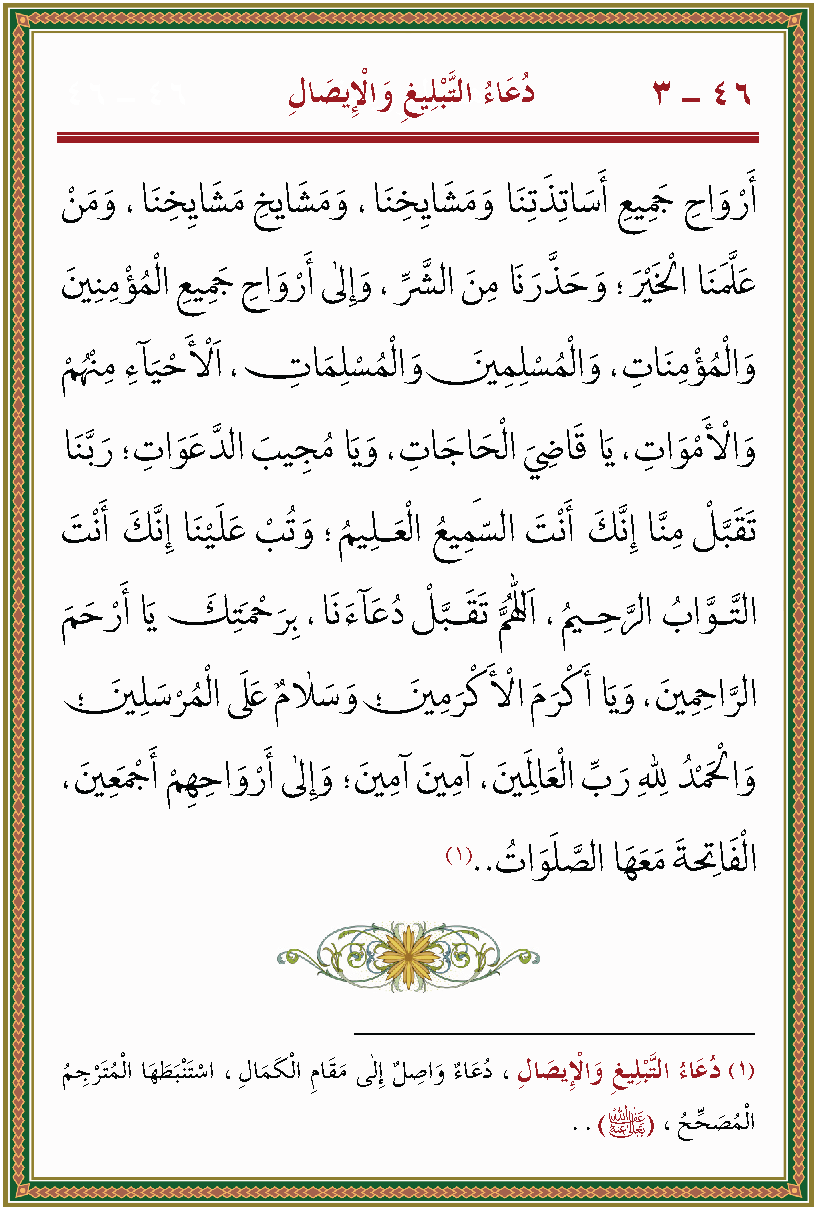 ٤٦ ــ ٣ دُعَاءُ التَّبْلِيغِ وَالْإِيصَالِ ٤٦ ــ ٤٦
أَرْوَاحِ جَمِيعِ أَسَاتِذَتِنَا وَمَشَايِخِنَا ، وَمَشَايِخِ مَشَايِخِنَا ، وَمَنْ
عَلَّمَنَا الْخَيْرَ ؛ وَحَذَّرَنَا مِنَ الشَّرِّ ، وَإِلٰى أَرْوَاحِ جَمِيعِ الْمُؤْمِنِينَ
وَالْمُؤْمِنَاتِ ، وَالْمُسْلِمِينَ وَالْمُسْلِمَاتِ ، اَلْأَحْيَآءِ مِنْهُمْ
وَالْأَمْوَاتِ ، يَا قَاضِيَ الْحَاجَاتِ ، وَيَا مُجِيبَ الدَّعَوَاتِ ؛ رَبَّنَا
تَقَبَّلْ مِنَّا إِنَّكَ أَنْتَ السَّمِيعُ الْعَـلِيمُ ؛ وَتُبْ عَلَيْنَا إِنَّكَ أَنْتَ
التَّـوَّابُ الرَّحِـيمُ ، اَللّٰهُمَّ تَقَـبَّلْ دُعَآءَنَا ، بِرَحْمَتِكَ يَا أَرْحَمَ
الرَّاحِمِينَ ، وَيَا أَكْرَمَ الْأَكْرَمِينَ ؛ وَسَلٰامٌ عَلَى الْمُرْسَلِينَ ؛
وَالْحَمْدُ لِلهِ رَبِّ الْعَالَمِينَ ، آمِينَ آمِينَ ؛ وَإِلٰى أَرْوَاحِهِمْ أَجْمَعِينَ ،
الْفَاتِحَةَ مَعَهَا الصَّلَوَاتُ . . (١)
(١) دُعَاءُ التَّبْلِيغِ وَالْإِيصَالِ ، دُعَاءٌ وَاصِلٌ إِلٰى مَقَامِ الْكَمَالِ ، اسْتَنْبَطَهَا الْمُتَرْجِمُ
الْمُصَحِّحُ ، ( ) . .